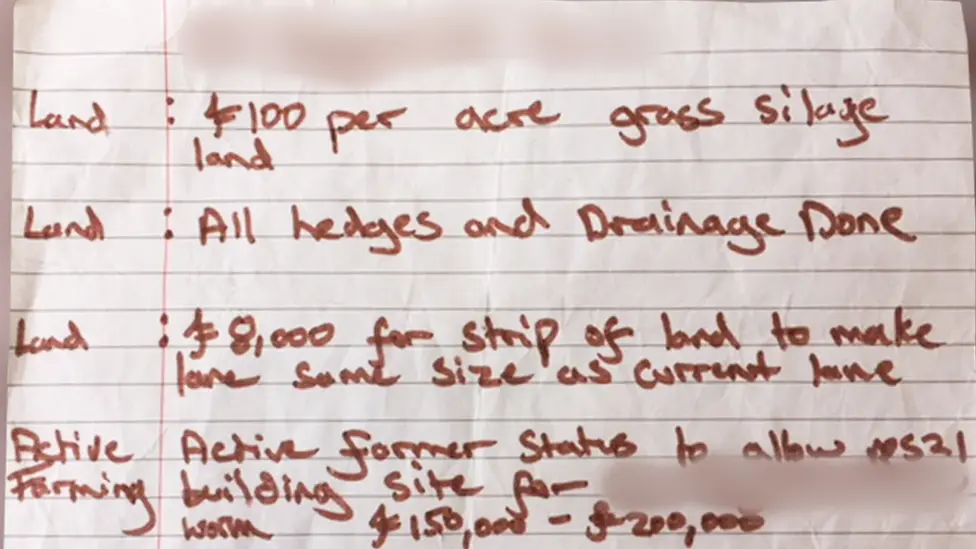 Land : £100 per acre grass silage
land
Land : All hedges and Drainage Done
Land : £8,000 for strip of land to make
lane same size as current lane
Active Active farmer Status to allow PPS21
Farming building site for
worth £150,000 - £200,000